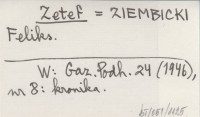 Zetef = ZIEMBICKI
Feliks.
W: Gaz. Podh. 24 (1946),
nr 8: kronika.